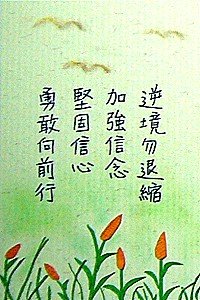 逆境勿退縮
加強信念
堅固信心
勇敢向前行